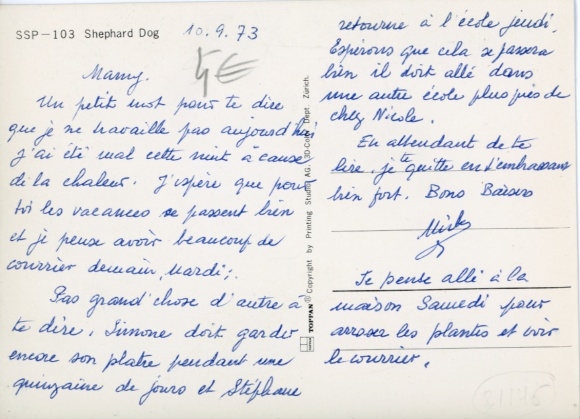 SSP-103 Shephard Dog
10.9.73
4€
Mamy.
Un petit mot pour te dire
que je ne travaille pas aujourd'hui
j'ai été mal cette nuit à cause
de la chaleur. J'espère que pour
toi les vacances se passent bien
et je pense avoir beaucoup de
courrier demain, Mardi.
Pas grand'chose d'autre à
te dire. Simone doit garder
encore son platre pendant une
quinzaine de jours et Stéphane
TOPPAN ® Copyright by Printing Studio AG, 3D-Color Dept. Zürich.
retourne à l'école jeudi.
Espérons que cela se passera
bien il doit allé dans
une autre école plus près de
chez Nicole.
En attendant de te
lire, je te quitte en t'embrassant
bien fort. Bons Baisers
Je pense allé à la
maison Samedi pour
arroser les plantes et voir
le courrier.